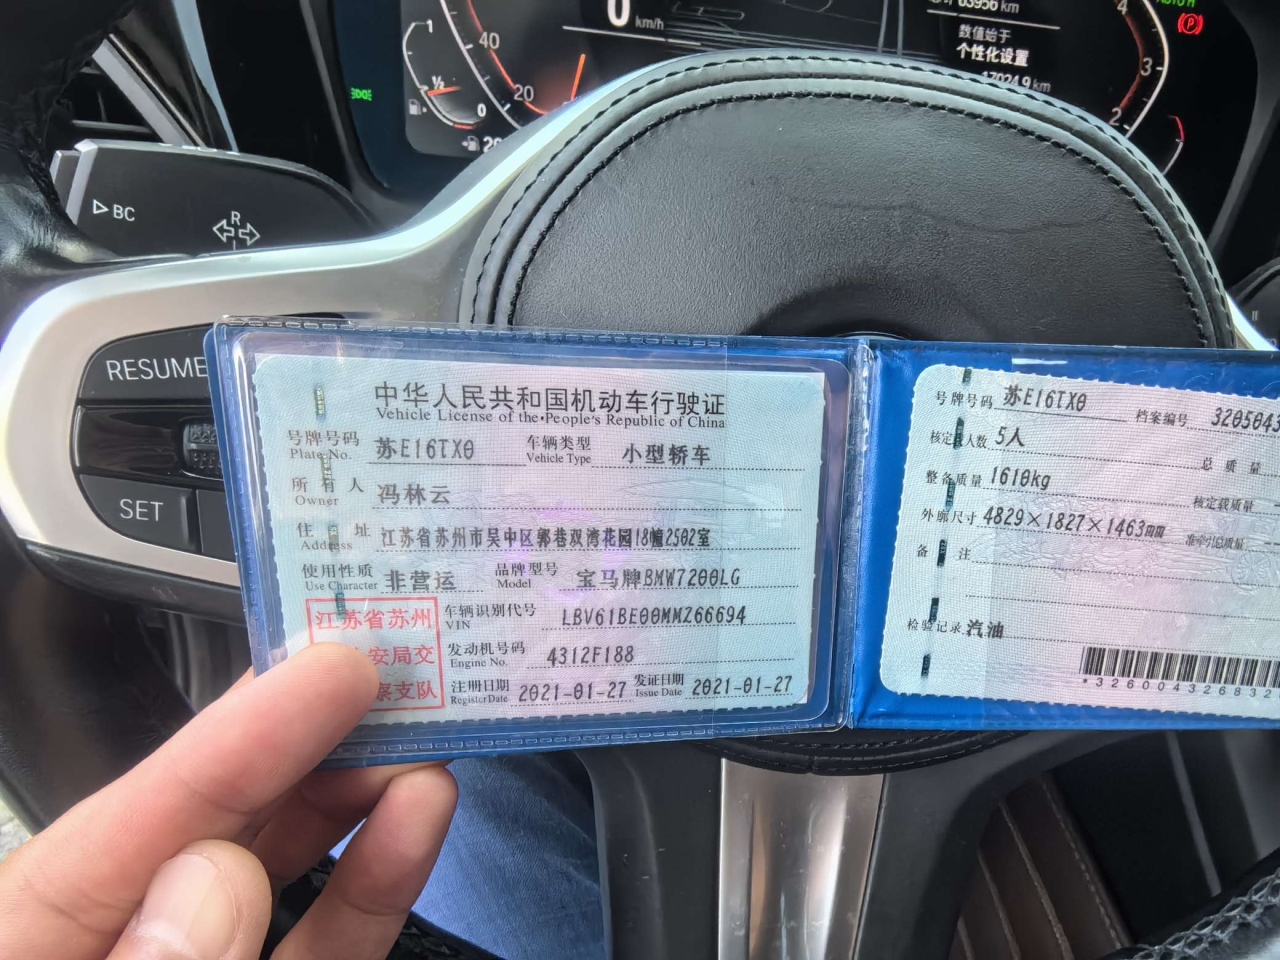 4
AUTO H
63956 km
0
km/h
数值始于
个性化设置
17024.9 km
(P)
3
2
1
½
0
40
20
BC
R
RESUME
SET
中华人民共和国机动车行驶证
Vehicle License of the People's Republic of China
号牌号码 苏E16TX0 车辆类型 小型轿车
Plate No. Vehicle Type
所有人 冯林云
Owner
住址 江苏省苏州市吴中区郭巷双湾花园18幢2502室
Address
使用性质 非营运 品牌型号 宝马牌BMW7200LG
Use Character Model
江苏省苏州
安局交
察支队
车辆识别代号 LBV61BE00MMZ66694
VIN
发动机号码 4312F188
Engine No.
注册日期 2021-01-27 发证日期 2021-01-27
Register Date Issue Date
号牌号码 苏E16TX0 档案编号 3205043
核定载人数 5人 总质量
整备质量 1610kg 核定载质量
外廓尺寸 4829×1827×1463mm 准牵引总质量
备注
检验记录 汽油
*326004326832